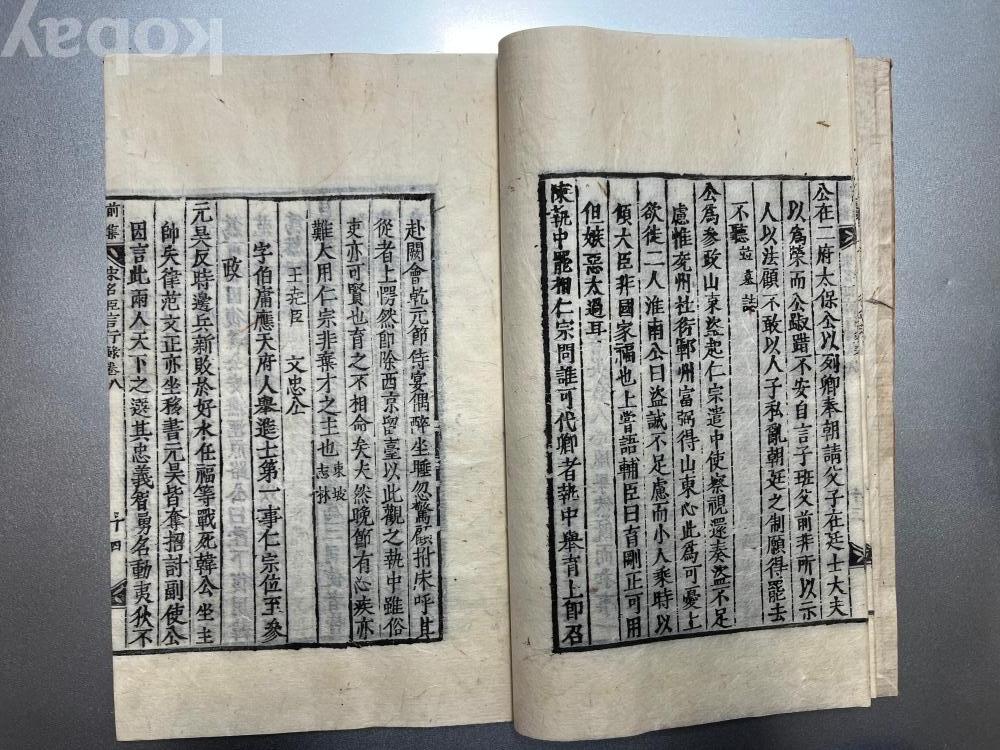 公在二府太保公以列卿奉朝請父子在廷士大夫
以爲榮而公踧踖不安自言子班父前非所以示
人以法顧不敢以人子私亂朝廷之制願得罷去
不聽 並墓誌
公爲參政山東盜起仁宗遣中使察視還奏盜不足
慮惟兖州杜衍鄆州富弼得山東心此爲可憂上
欲徙二人淮南公曰盜誠不足慮而小人乘時以
傾大臣非國家福也上嘗語輔臣曰育剛正可用
但嫉惡太過耳
陳執中罷相仁宗問誰可代卿者執中舉育上即召
赴闕會乾元節侍宴偶醉坐睡忽驚顧拊床呼其
從者上愕然即除西京留臺以此觀之執中雖俗
吏亦可賢也育之不相命矣夫然晚節有心疾亦
難大用仁宗非棄才之主也 東坡志林
王尭臣 文忠公
字伯庸應天府人舉進士第一事仁宗位至參
政
元昊反時邊兵新敗於好水任福等戰死韓公坐主
帥失律范文正亦坐移書元昊皆奪招討副使公
因言此兩人天下之選其忠義智勇名動夷狄不
前集 宋名臣言行錄卷八
kobay